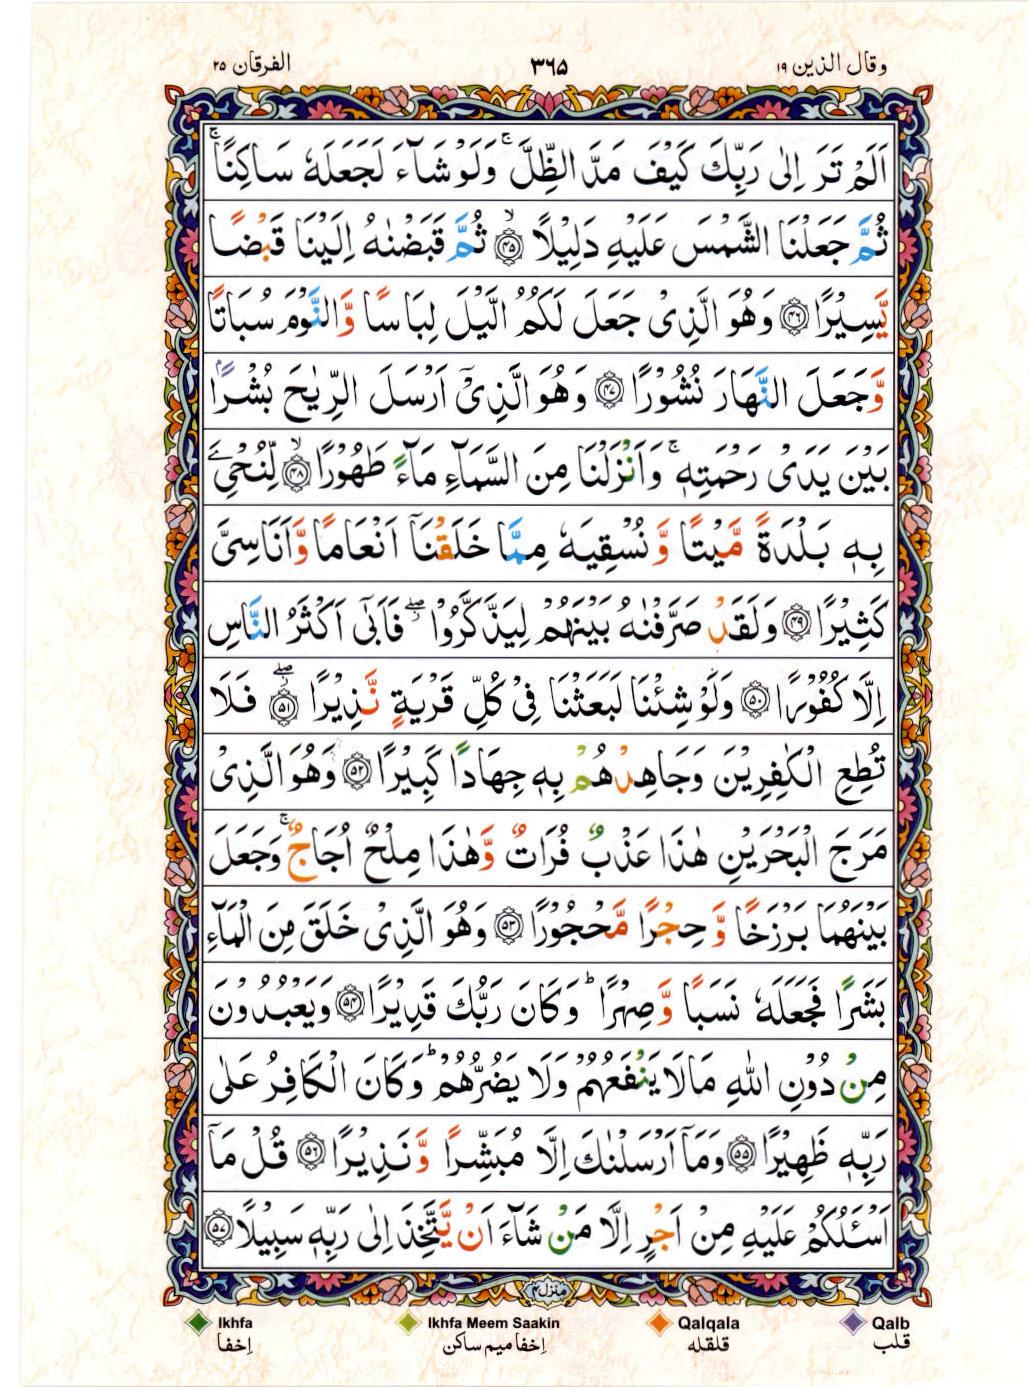 وقال الذین ۱۹
۳۶۵
الفرقان ۲۵
اَلَمْ تَرَ اِلٰی رَبِّكَ كَیْفَ مَدَّ الظِّلَّ ۚ وَلَوْ شَآءَ لَجَعَلَهٗ سَاكِنًا ۚ
ثُمَّ جَعَلْنَا الشَّمْسَ عَلَیْهِ دَلِیْلًا ۙ﴿۴۵﴾ ثُمَّ قَبَضْنٰهُ اِلَیْنَا قَبْضًا
یَّسِیْرًا ﴿۴۶﴾ وَهُوَ الَّذِیْ جَعَلَ لَكُمُ الَّیْلَ لِبَاسًا وَّالنَّوْمَ سُبَاتًا
وَّجَعَلَ النَّهَارَ نُشُوْرًا ﴿۴۷﴾ وَهُوَ الَّذِیْۤ اَرْسَلَ الرِّیٰحَ بُشْرًۢا
بَیْنَ یَدَیْ رَحْمَتِهٖ ۚ وَاَنْزَلْنَا مِنَ السَّمَآءِ مَآءً طَهُوْرًا ۙ﴿۴۸﴾ لِّنُحْیِۦَ
بِهٖ بَلْدَةً مَّیْتًا وَّنُسْقِیَهٗ مِمَّا خَلَقْنَاۤ اَنْعَامًا وَّاَنَاسِیَّ
كَثِیْرًا ﴿۴۹﴾ وَلَقَدْ صَرَّفْنٰهُ بَیْنَهُمْ لِیَذَّكَّرُوْا ۖ فَاَبٰۤی اَكْثَرُ النَّاسِ
اِلَّا كُفُوْرًا ﴿۵۰﴾ وَلَوْ شِئْنَا لَبَعَثْنَا فِیْ كُلِّ قَرْیَةٍ نَّذِیْرًا ۖ﴿۵۱﴾ فَلَا
تُطِعِ الْكٰفِرِیْنَ وَجَاهِدْهُمْ بِهٖ جِهَادًا كَبِیْرًا ﴿۵۲﴾ وَهُوَ الَّذِیْ
مَرَجَ الْبَحْرَیْنِ هٰذَا عَذْبٌ فُرَاتٌ وَّهٰذَا مِلْحٌ اُجَاجٌ ۚ وَجَعَلَ
بَیْنَهُمَا بَرْزَخًا وَّحِجْرًا مَّحْجُوْرًا ﴿۵۳﴾ وَهُوَ الَّذِیْ خَلَقَ مِنَ الْمَآءِ
بَشَرًا فَجَعَلَهٗ نَسَبًا وَّصِهْرًا ؕ وَكَانَ رَبُّكَ قَدِیْرًا ﴿۵۴﴾ وَیَعْبُدُوْنَ
مِنْ دُوْنِ اللّٰهِ مَالَا یَنْفَعُهُمْ وَلَا یَضُرُّهُمْ ؕ وَكَانَ الْكَافِرُ عَلٰی
رَبِّهٖ ظَهِیْرًا ﴿۵۵﴾ وَمَاۤ اَرْسَلْنٰكَ اِلَّا مُبَشِّرًا وَّنَذِیْرًا ﴿۵۶﴾ قُلْ مَاۤ
اَسْـَٔلُكُمْ عَلَیْهِ مِنْ اَجْرٍ اِلَّا مَنْ شَآءَ اَنْ یَّتَّخِذَ اِلٰی رَبِّهٖ سَبِیْلًا ﴿۵۷﴾
منزل۴
Ikhfa Ikhfa Meem Saakin Qalqala Qalb
اِخفا اِخفا میم ساکن قلقله قلب